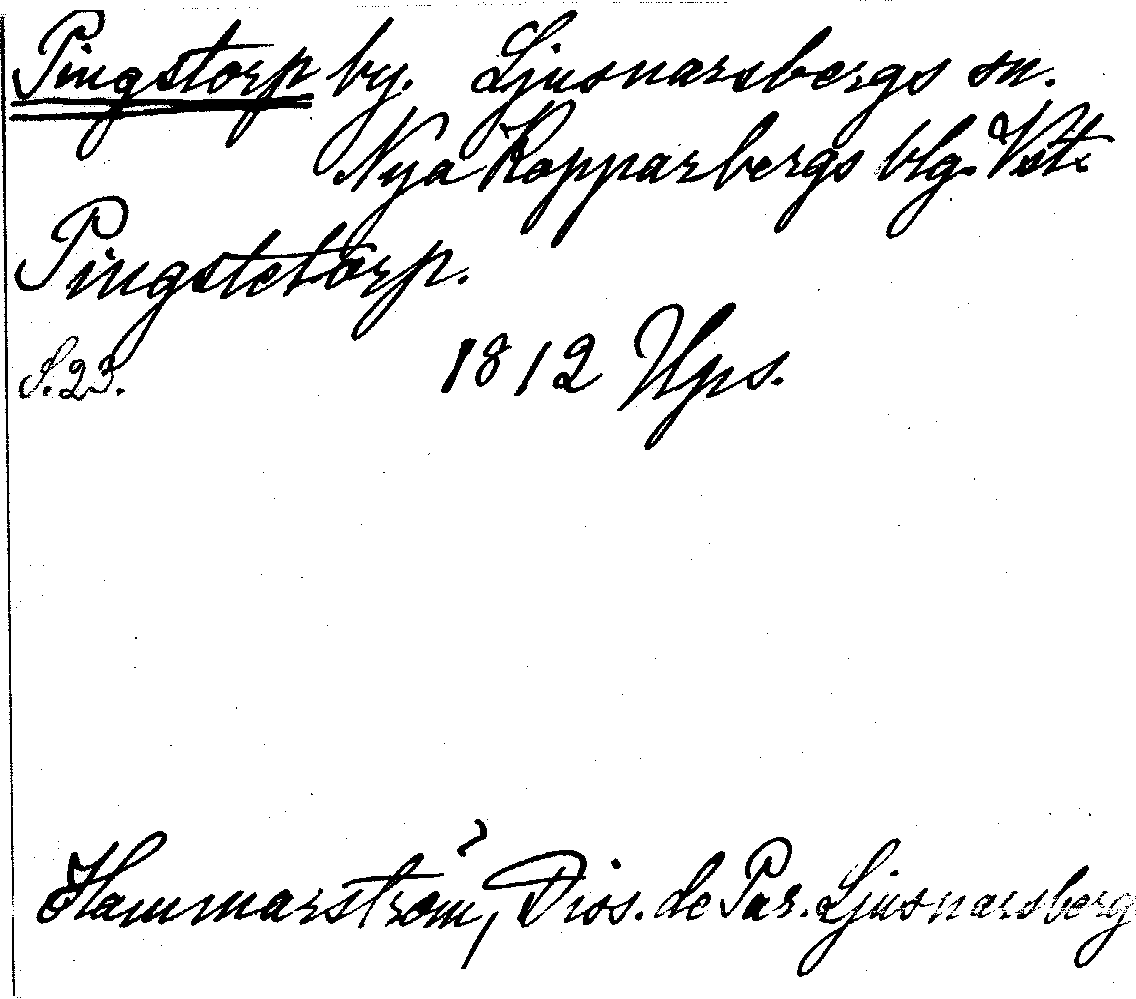 Pingstorp by. Ljusnarsbergs sn.
Nya Kopparbergs blg. Vstm.
Pingstetorp.
S. 23. 1812 Ups.
Hammarström, Diss. de Par. Ljusnarsberg